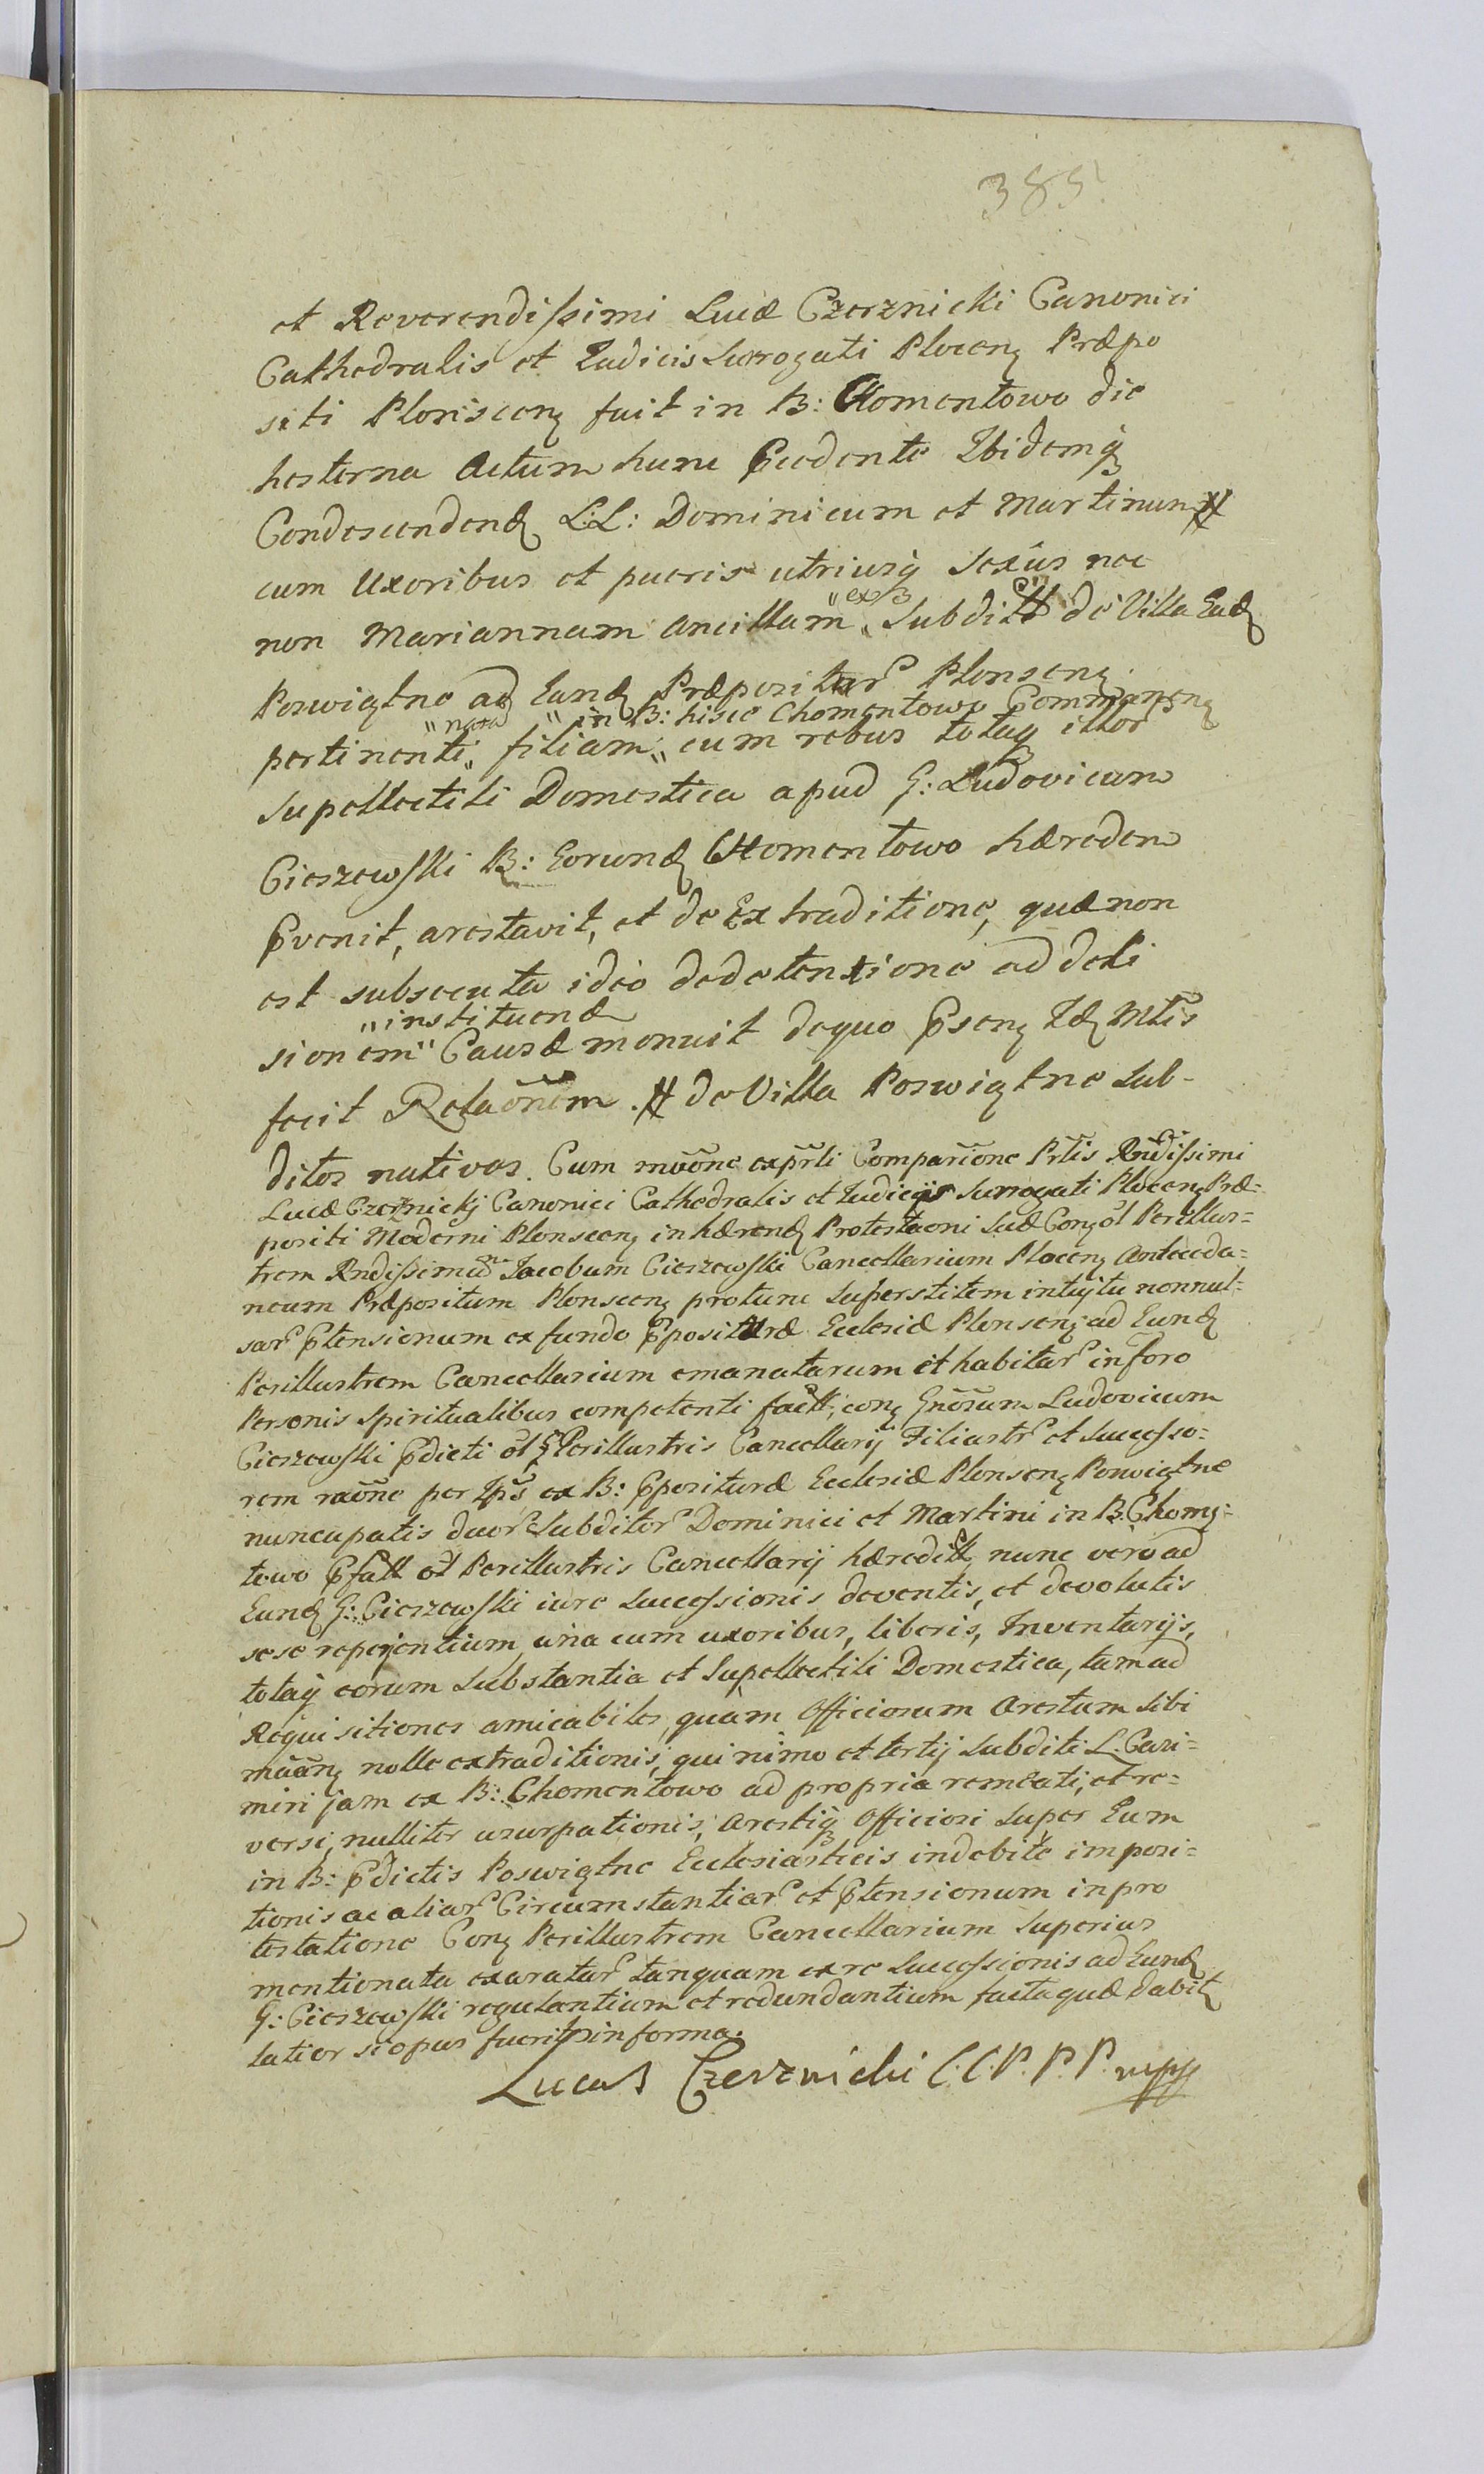 385
et Reverendissimi Lucæ Czerznicki Canonici
Cathedralis et Iudicis Surrogati Plocenẓ Præpo
siti Plonscenẓ fuit in B: Chomentowo die
hesterna Actum hunc Pcedente Ibidemq̃
Condescendendẓ L:L: Dominicum et Martinum #
cum Uxoribus et pueris utriusq̃ sexûs nec
non Mariannam Ancillam „ex„ Subditt de Villa Eadẓ
Poswiętne ad Eandẓ Præpositarʳ Plonsceng
„nata„ „in B: hisce Chomentowo Commanenẓ
pertinenti„ filiam„ cum rebus totaq̃ illorʳ
Supellectili Domestica apud G: Ludovicum
Cieszewski B: Eorundẓ Chomentowo hæredem
Pvenit, arestavit, et de Extraditione, quæ non
est subsecuta ideò de detentione ad deci
„instituendæ
sionem" Causæ monuit de quo Psenẓ Idẓ Mtĩs
fecit Relaõnem. # de Villa Poswiętne Sub-
ditos nativos. Cum mõõne exprli Comparĩõne Prĩis Rñdissimi
Lucæ Czerznickj Canonici Cathedralis et Iudicijs Surrogati Plocenẓ Præ=
positi Moderni Plonscenẓ inhærendẓ Protestaõni Suæ Conẓ ol Perillus=
trem Rndissimum Jacobum Cieszewski Cancellarium Plocenẓ Anteceda=
neum Præpositum Plonscenẓ protunc Superstitem intuitu nonnul=
sarʳ Ptensionum ex fundo Ppositturæ Ecclesiæ Plonscenẓ ad Eundẓ
Perillustrem Cancellarium emanatarum et habitarʳ in foro
Personis Spiritualibus competenti factt, conẓ Gnõsum Ludovicum
Cieszewski Pdicti ol Perillustris Cancellarij Filiastrʳ et Successo=
rem rãõne per Ips̃ ex B: Pposituræ Ecclesiæ Plonscenẓ Poswiętne
nuncupatis duorʳ Subditorʳ Dominici et Martini in B. Chomę=
towo Pfatt ol Perillustris Cancellarij hæreditt, nunc verò ad
Eundẓ G: Cieszewski iure Successionis deventis, et devolutis
sese reperientium, una cum uxoribus, liberis, Inventarijs,
totaq̃ eorum Substantia et Supellectili Domestica, tam ad
Requisitiones amicabiles, quàm Officiosum Arestum Sibi
mããnẓ nolle extraditionis, quinimo et tertij Subditi L: Cazi=
miri jam ex B: Chomentowo ad propria remeati, et re=
versi, nulliter usurpationis, Arestiq̃ Officiosi Super Eum
in B: Pdictis Poswiętne Ecclesiasticis indebitè imposi=
tionis ac aliarʳ Circumstantiarʳ et Ptensionum in pro
testatione Conẓ Perillustrem Cancellarium Superius
mentionata exaratarʳ tanquam ex re Successionis ad Eundẓ
G: Cieszewski regulantium et redundantium facta quæ dabitẓ
latior si opus fuerit in forma.
Lucas Czerznicki C.C.P.P.P. mpp